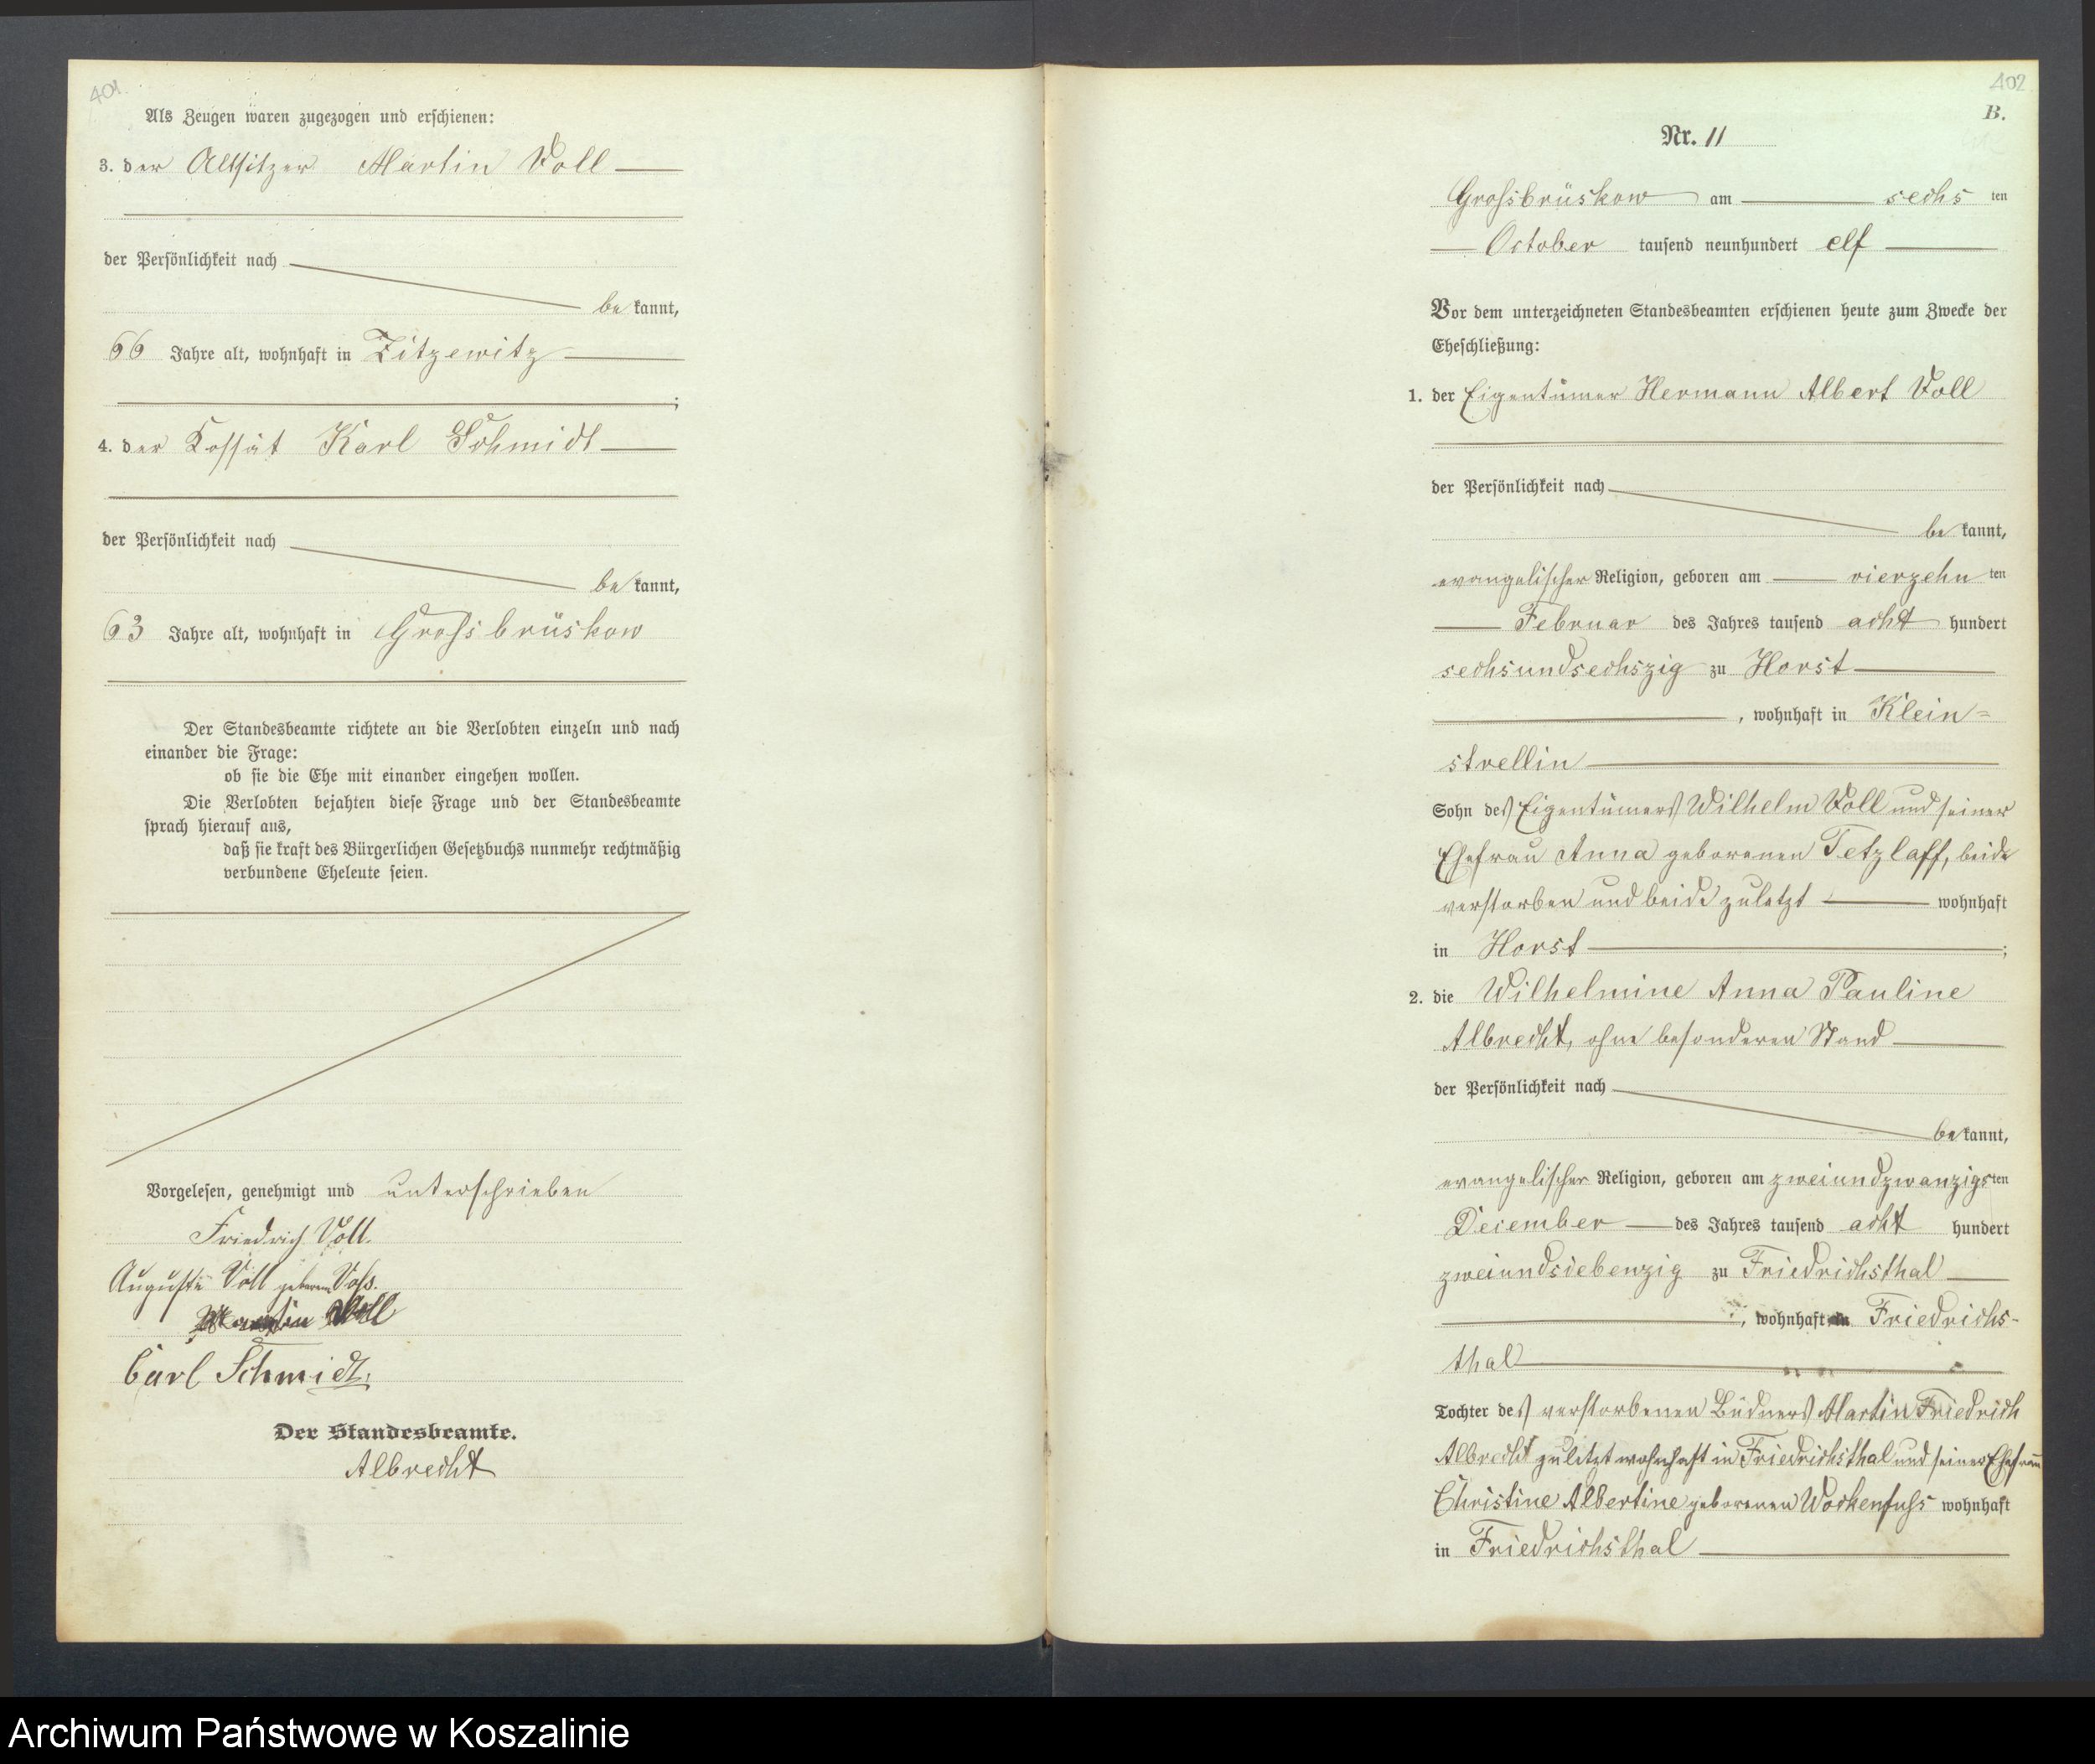 401.
Als Zeugen waren zugezogen und erschienen:
3. der Altsitzer Martin Voll
der Persönlichkeit nach
bekannt,
66 Jahre alt, wohnhaft in Zitzewitz
;
4. der Kossät Karl Schmidt
der Persönlichkeit nach
bekannt,
63 Jahre alt, wohnhaft in Grossbrüskow
Der Standesbeamte richtete an die Verlobten einzeln und nach
einander die Frage:
ob sie die Ehe mit einander eingehen wollen.
Die Verlobten bejahten diese Frage und der Standesbeamte
sprach hierauf aus,
daß sie kraft des Bürgerlichen Gesetzbuchs nunmehr rechtmäßig
verbundene Eheleute seien.
Vorgelesen, genehmigt und unterschrieben
Friedrich Voll.
Auguste Voll geborene Voss.
Martin Voll
Carl Schmidt.
Der Standesbeamte.
Albrecht
402
B.
Nr. 11
Grossbrüskow am sechsten
October tausend neunhundert elf
Vor dem unterzeichneten Standesbeamten erschienen heute zum Zwecke der
Eheschließung:
1. der Eigentümer Hermann Albert Voll
der Persönlichkeit nach
bekannt,
evangelischer Religion, geboren am vierzehnten
Februar des Jahres tausend achthundert
sechsundsechszig zu Horst
, wohnhaft in Klein=
strellin
Sohn des Eigentümers Wilhelm Voll und seiner
Ehefrau Anna geborenen Tetzlaff, beide
verstorben und beide zuletzt wohnhaft
in Horst ;
2. die Wilhelmine Anna Pauline
Albrecht, ohne besonderen Stand
der Persönlichkeit nach
bekannt,
evangelischer Religion, geboren am zweiundzwanzigsten
December des Jahres tausend achthundert
zweiundsiebenzig zu Friedrichsthal
, wohnhaft in Friedrichs-
thal
Tochter des verstorbenen Büdners Martin Friedrich
Albrecht zuletzt wohnhaft in Friedrichsthal und seiner Ehefrau
Christine Albertine geborenen Wockenfuss wohnhaft
in Friedrichsthal
Archiwum Państwowe w Koszalinie